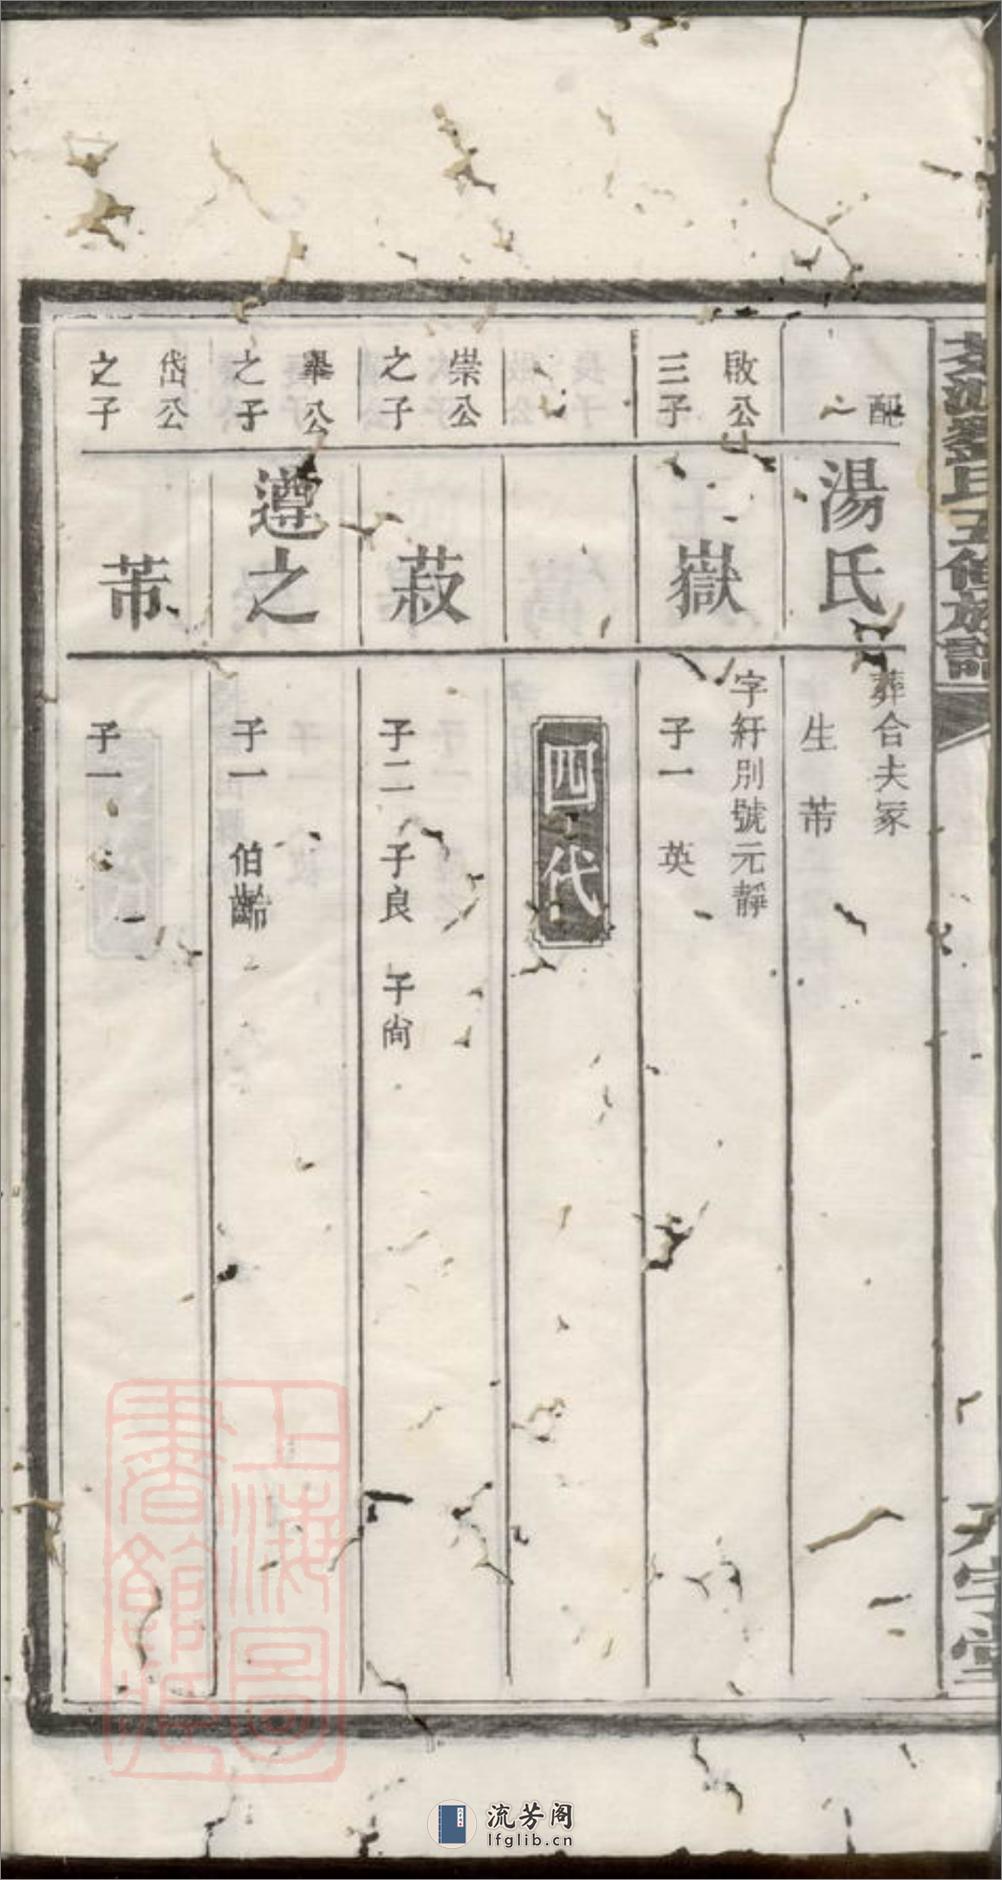 劉氏五修族譜
配
湯氏
葬合夫冢
生芾
啟公
三子
嶽
字紆別號元靜
子一 英
四代
崇公
之子
菽
子二 子良 子尚
舉公
之子
遵之
子一 伯齡
岱公
之子
芾
子一
上海圖
書館藏
流芳阁
lfglib.cn